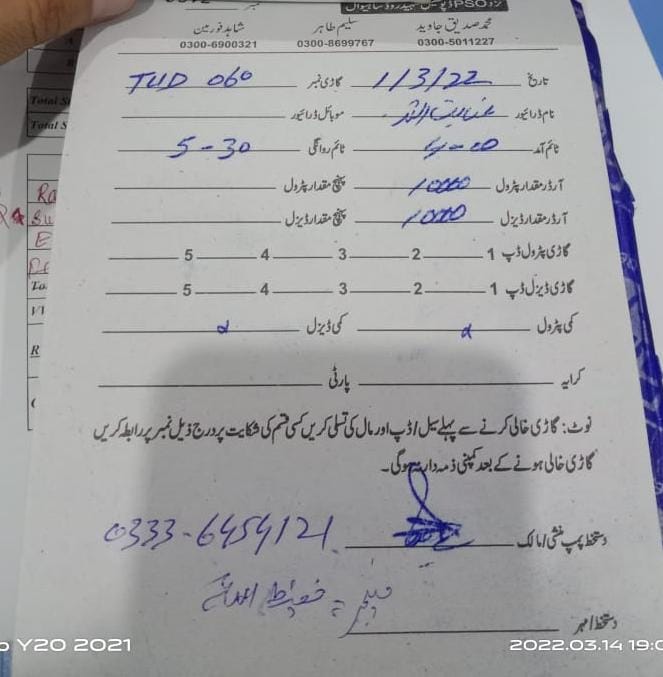 نزد PSO ڈپو سیل سپیڈ روڈ ساہیوال
محمد صدیق جاوید سلیم طاہر شاہد فورمین
0300-5011227 0300-8699767 0300-6900321
تاریخ 1/3/22 گاڑی نمبر TUD 060
نام ڈرائیور عنایت اللہ موبائل ڈرائیور
ٹائم آمد ٹائم روانگی 5-30
آرڈر مقدار پٹرول 10000 پہنچ مقدار پٹرول
آرڈر مقدار ڈیزل پہنچ مقدار ڈیزل
گاڑی پٹرول ڈپ 1 2 3 4 5
گاڑی ڈیزل ڈپ 1 2 3 4 5
کمی پٹرول کمی ڈیزل
کرایہ پارٹی
نوٹ: گاڑی خالی کرنے سے پہلے سیل/ڈپ اور مال کی تسلی کریں کسی قسم کی شکایت پر درج ذیل نمبر پر رابطہ کریں
گاڑی خالی ہونے کے بعد کمپنی ذمہ دار نہ ہوگی۔
دستخط پمپ منشی/مالک 0333-6454121
دستخط/مہر
Total S
Total S
Y20 2021
2022.03.14 19:0